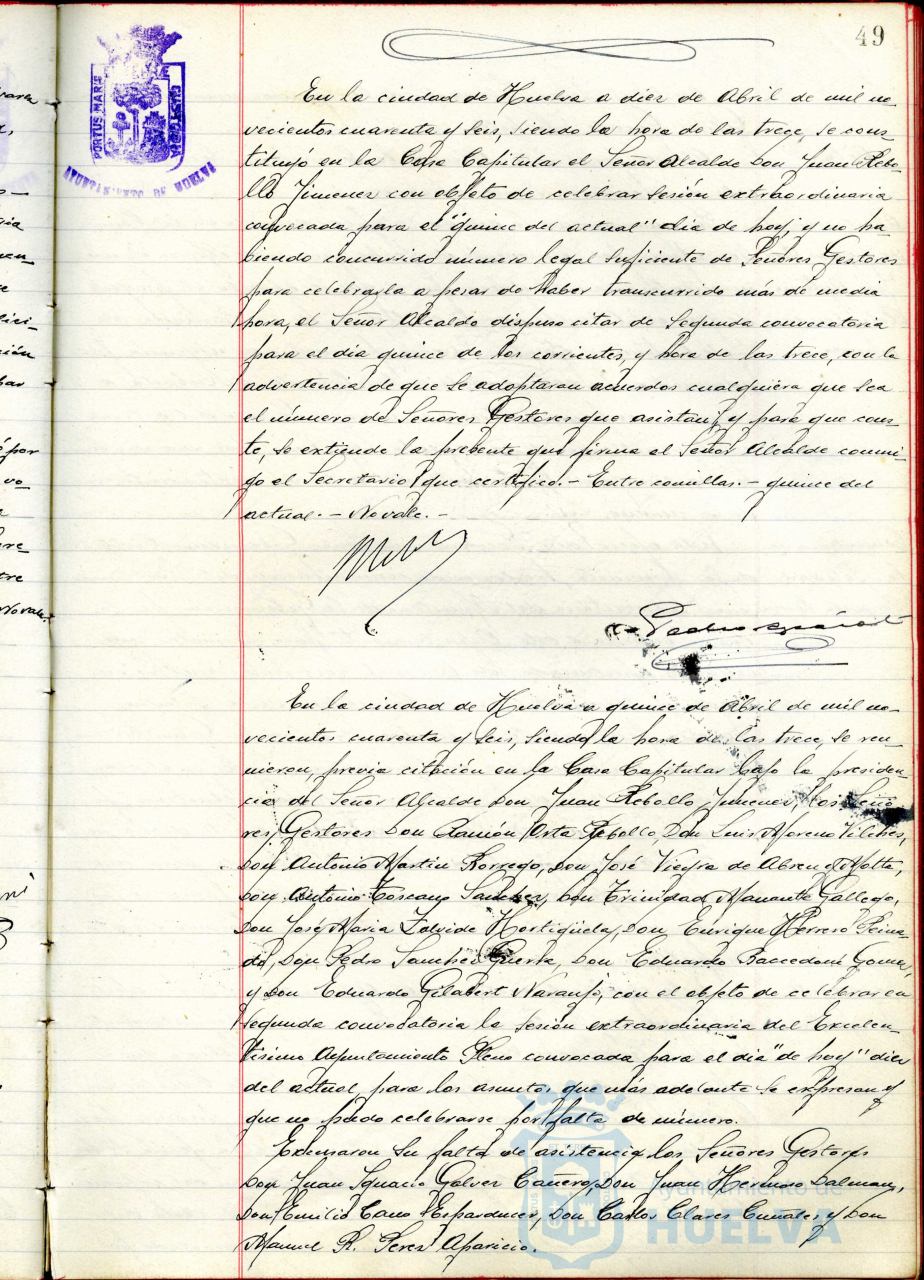 49
PORTUS MARIS
CUSTODIA
AYUNTAMIENTO DE HUELVA
En la ciudad de Huelva a diez de Abril de mil no-
vecientos cuarenta y seis, siendo la hora de las trece, se cons-
tituyó en la Casa Capitular el Señor Alcalde Don Juan Rebo-
llo Jimenez con objeto de celebrar sesión extraordinaria
convocada para el "quince del actual" día de hoy, y no ha-
biendo concurrido número legal suficiente de Señores Gestores
para celebrarla a pesar de haber transcurrido más de media
hora, el Señor Alcalde dispuso citar de segunda convocatoria
para el día quince de los corrientes, y hora de las trece, con la
advertencia de que se adoptaran acuerdos cualquiera que sea
el número de Señores Gestores que asistan, y para que cons-
te, se extiende la presente que firma el Señor Alcalde conmi-
go el Secretario que certifico.- Entre comillas.- quince del
actual.- No vale.-
Pedro
En la ciudad de Huelva a quince de Abril de mil no-
vecientos cuarenta y seis, siendo la hora de las trece, se reu-
nieron, previa citación en la Casa Capitular bajo la presiden-
cia del Señor Alcalde Don Juan Rebollo Jimenez, los Seño-
res Gestores Don Ramón Orta Rebollo, Don Luis Moreno Vilches,
Don Antonio Martin Borrego, Don José Vieyra de Abreu y Motta,
Don Antonio Toscano Sanchez, Don Trinidad Manante Gallego,
Don José Maria Zalvide Hortigüela, Don Enrique Herrero Peina-
do, Don Pedro Sanchez Guerra, Don Eduardo Baccedoni Gomez,
y Don Eduardo Gilabert Naranjo, con el objeto de celebrar en
segunda convocatoria la sesión extraordinaria del Excelen-
tísimo Ayuntamiento Pleno convocada para el día "de hoy" diez
del actual, para los asuntos que más adelante se expresan y
que no pudo celebrarse por falta de número.
Excusaron su falta de asistencia los Señores Gestores
Don Juan Ignacio Galvez Cañero, Don Juan Hermoso Dalmau,
Don Emilio Cano Don Carlos Clares y Don
Manuel R. Perez Aparicio.
Ayuntamiento de
HUELVA